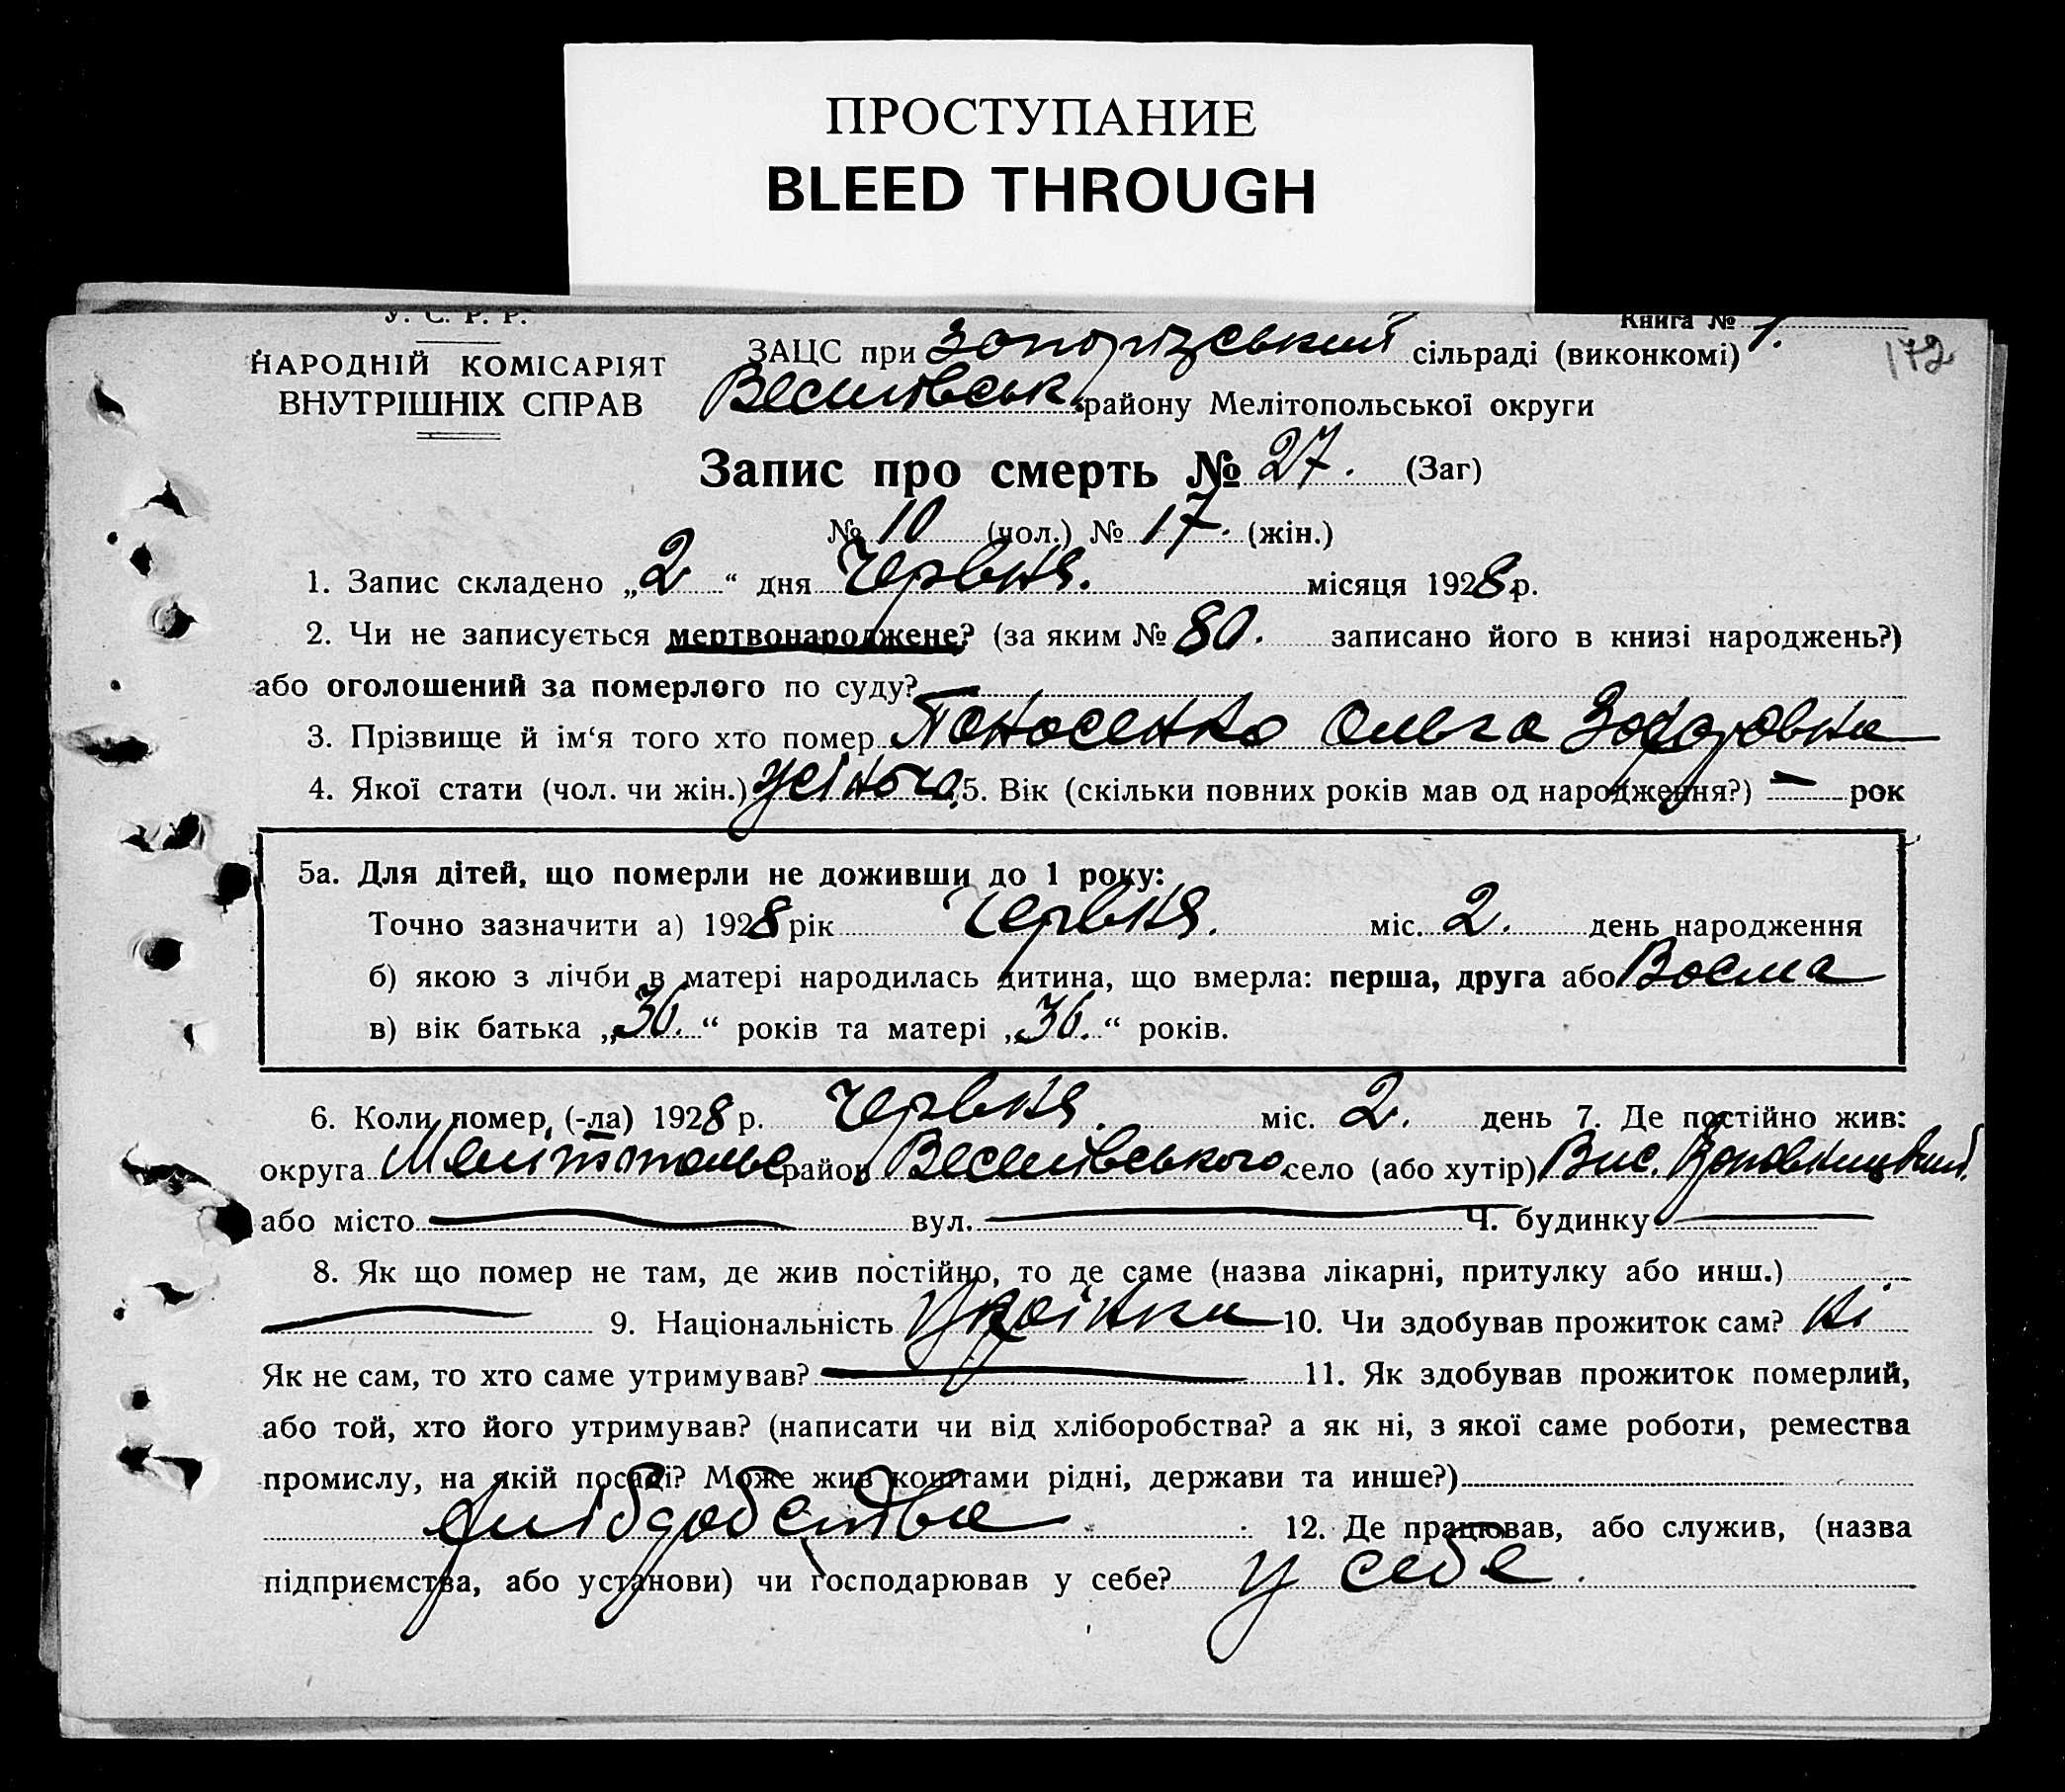 ПРОСТУПАНИЕ
BLEED THROUGH
У. С. Р. Р.
Книга № 1.
НАРОДНІЙ КОМІСАРІЯТ
ВНУТРІШНІХ СПРАВ
172
ЗАЦС при Запорізський сільраді (виконкомі)
Веселівськ району Мелітопольської округи
Запис про смерть № 27. (Заг)
№ 10 (чол.) № 17. (жін.)
1. Запис складено „2“ дня Червня. місяця 1928 р.
2. Чи не записується мертвонароджене? (за яким № 80. записано його в книзі народжень?)
або оголошений за померлого по суду? —
3. Прізвище й ім‘я того хто помер Ольга
4. Якої стати (чол. чи жін.) жіноча. 5. Вік (скільки повних років мав од народження?) — рок
5а. Для дітей, що померли не доживши до 1 року:
Точно зазначити а) 1928 рік Червня. міс. 2. день народження
б) якою з лічби в матері народилась дитина, що вмерла: перша, друга або Восма
в) вік батька „36.“ років та матері „36.“ років.
6. Коли помер, (-ла) 1928 р. Червня. міс. 2. день 7. Де постійно жив:
округа район Веселівського село (або хутір) Вис.
або місто — вул. — Ч. будинку —
8. Як що помер не там, де жив постійно, то де саме (назва лікарні, притулку або инш.)
— 9. Національність Українка 10. Чи здобував прожиток сам? Ні
Як не сам, то хто саме утримував? — 11. Як здобував прожиток померлий,
або той, хто його утримував? (написати чи від хліборобства? а як ні, з якої саме роботи, ремества
промислу, на якій посаді? Може жив коштами рідні, держави та инше?)
12. Де працював, або служив, (назва
підприємства, або установи) чи господарював у себе? у себе.